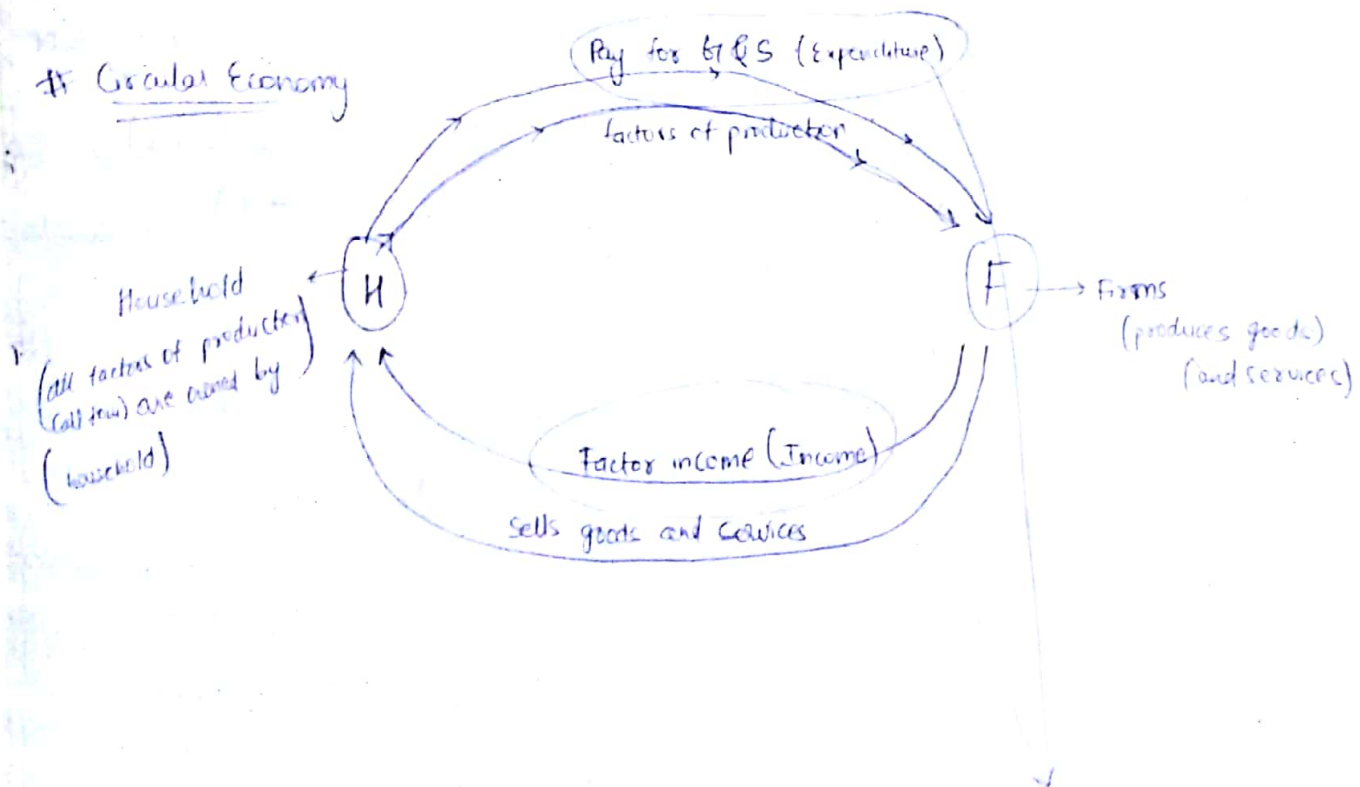 # Circular Economy
Pay for G & S (Expenditure)
factors of production
H
F
Household
(all factors of production
(all four) are owned by)
(household)
Firms
(produces goods)
(and services)
Factor income (Income)
Sells goods and services